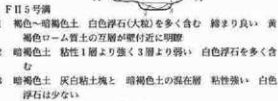 FⅡ5号溝
1 褐色～暗褐色土 白色浮石(大粒)を多く含む 締まり良い 黄
褐色ローム質土の互層が壁付近に明瞭
2 暗褐色土 粘性1層より強く3層より弱い 白色浮石を多く含
む
3 暗褐色土 灰白粘土塊と 暗褐色土の混在層 粘性強い 白色
浮石は少ない